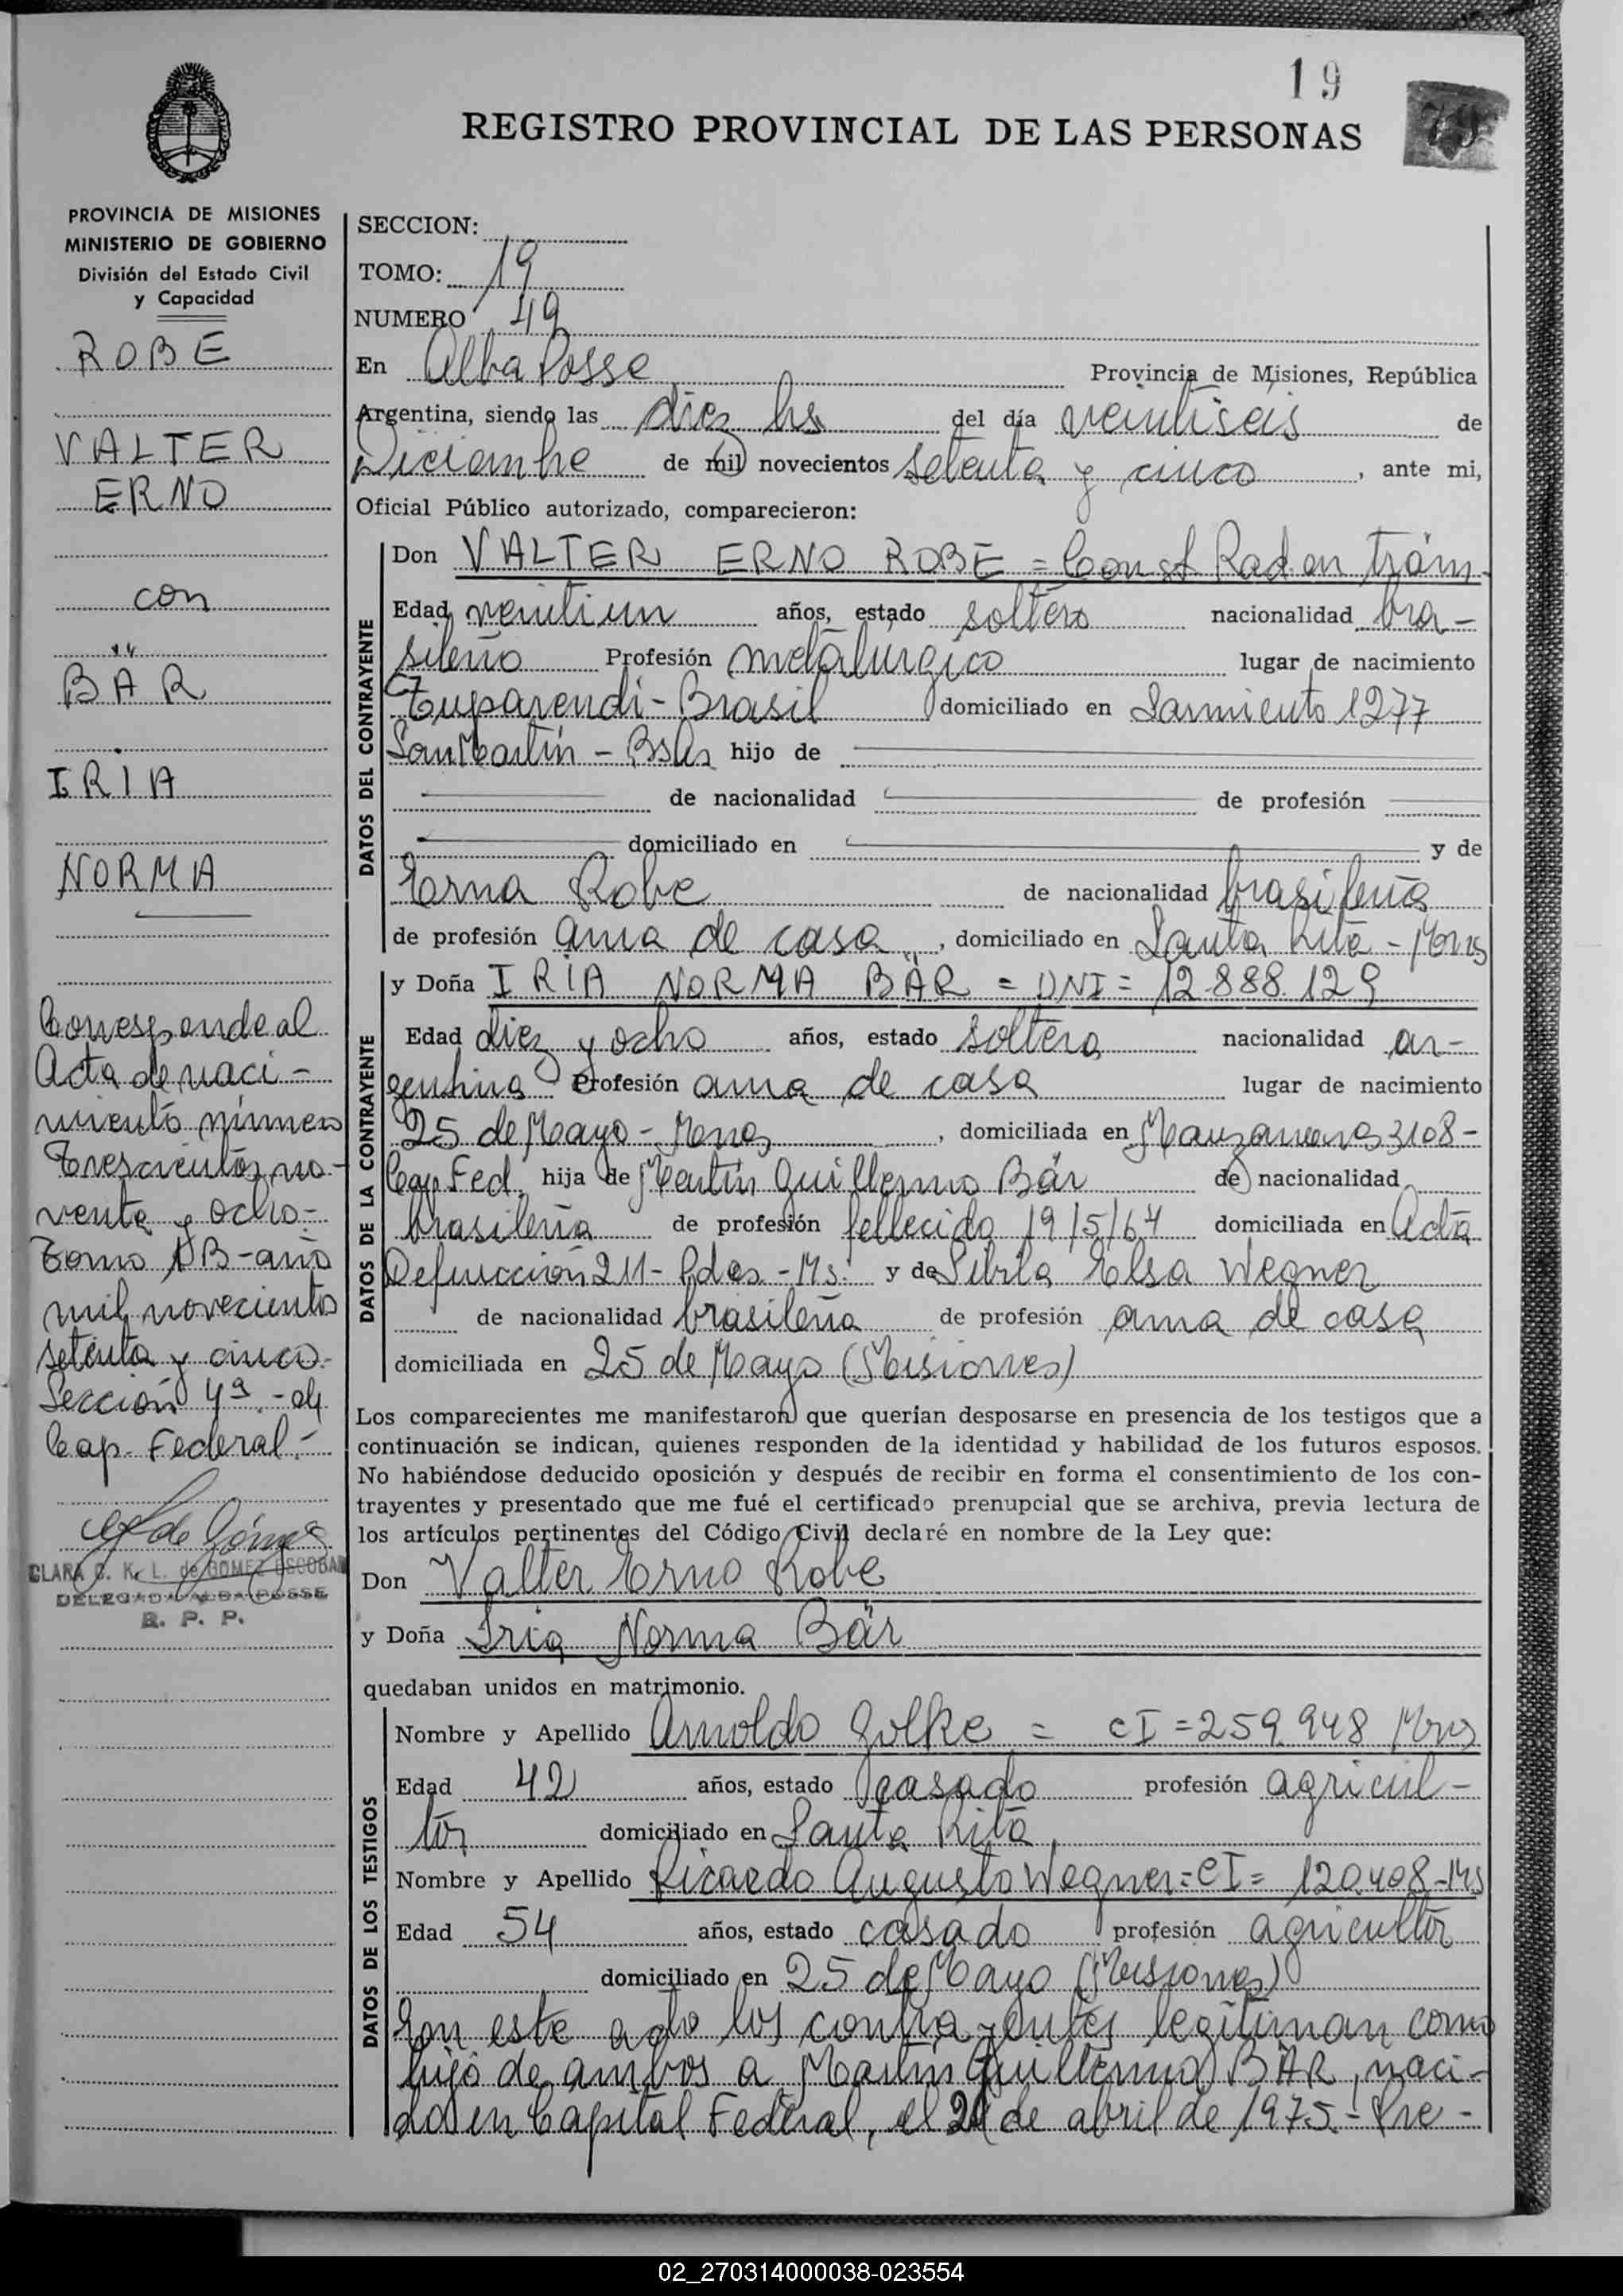 19
REGISTRO PROVINCIAL DE LAS PERSONAS
PROVINCIA DE MISIONES
MINISTERIO DE GOBIERNO
División del Estado Civil
y Capacidad
ROBE
VALTER
ERNO
con
BÄR
IRIA
NORMA
Corresponde al
Acta de naci-
miento número
Trescientos no-
venta y ocho-
Tomo 1B-año
mil novecientos
setenta y cinco.-
Sección 4ª.- de
Cap. Federal.-
CLARA C. K. L. de GOMEZ ESCOBAR
DELEGADA ALBA POSSE
R. P. P.
SECCION:
TOMO: 19
NUMERO 49
En Alba Posse Provincia de Misiones, República
Argentina, siendo las diez hs del día veintiseis de
Diciembre de mil novecientos setenta y cinco, ante mi,
Oficial Público autorizado, comparecieron:
DATOS DEL CONTRAYENTE
Don VALTER ERNO ROBE = Const Rad en trám-
Edad veintiun años, estado soltero nacionalidad bra-
sileño Profesión metalurgico lugar de nacimiento
Tuparendi-Brasil domiciliado en Sarmiento 1277
San Martín - BsAs hijo de
de nacionalidad de profesión
domiciliado en y de
Erna Robe de nacionalidad brasileña
de profesión ama de casa, domiciliado en Santa Rita - Mnes
DATOS DE LA CONTRAYENTE
y Doña IRIA NORMA BÄR = DNI = 12.888.129
Edad diez y ocho años, estado soltera nacionalidad ar-
gentina Profesión ama de casa lugar de nacimiento
25 de Mayo - Mnes, domiciliada en Manzanares 3108-
Cap. Fed. hija de Martín Guillermo Bär de nacionalidad
brasileña de profesión fellecido 19/5/64 domiciliada en Acta
Defuncción 211- Pdas.-Ms. y de Sibila Elsa Wegner
de nacionalidad brasileña de profesión ama de casa
domiciliada en 25 de Mayo (Misiones)
Los comparecientes me manifestaron que querían desposarse en presencia de los testigos que a
continuación se indican, quienes responden de la identidad y habilidad de los futuros esposos.
No habiéndose deducido oposición y después de recibir en forma el consentimiento de los con-
trayentes y presentado que me fué el certificado prenupcial que se archiva, previa lectura de
los artículos pertinentes del Código Civil declaré en nombre de la Ley que:
Don Valter Erno Robe
y Doña Iria Norma Bär
quedaban unidos en matrimonio.
DATOS DE LOS TESTIGOS
Nombre y Apellido Arnoldo Golke = CI = 259.948 Mnes
Edad 42 años, estado casado profesión agricul-
tor domiciliado en Santa Rita,
Nombre y Apellido Ricardo Augusto Wegner = CI = 120.408-Ms
Edad 54 años, estado casado profesión agricultor
domiciliado en 25 de Mayo (Misiones)
En este acto los contrayentes legitiman como
hijo de ambos a Martín Guillermo BÄR, naci-
do en Capital Federal, el de abril de 1975.- Pre-
02_270314000038-023554